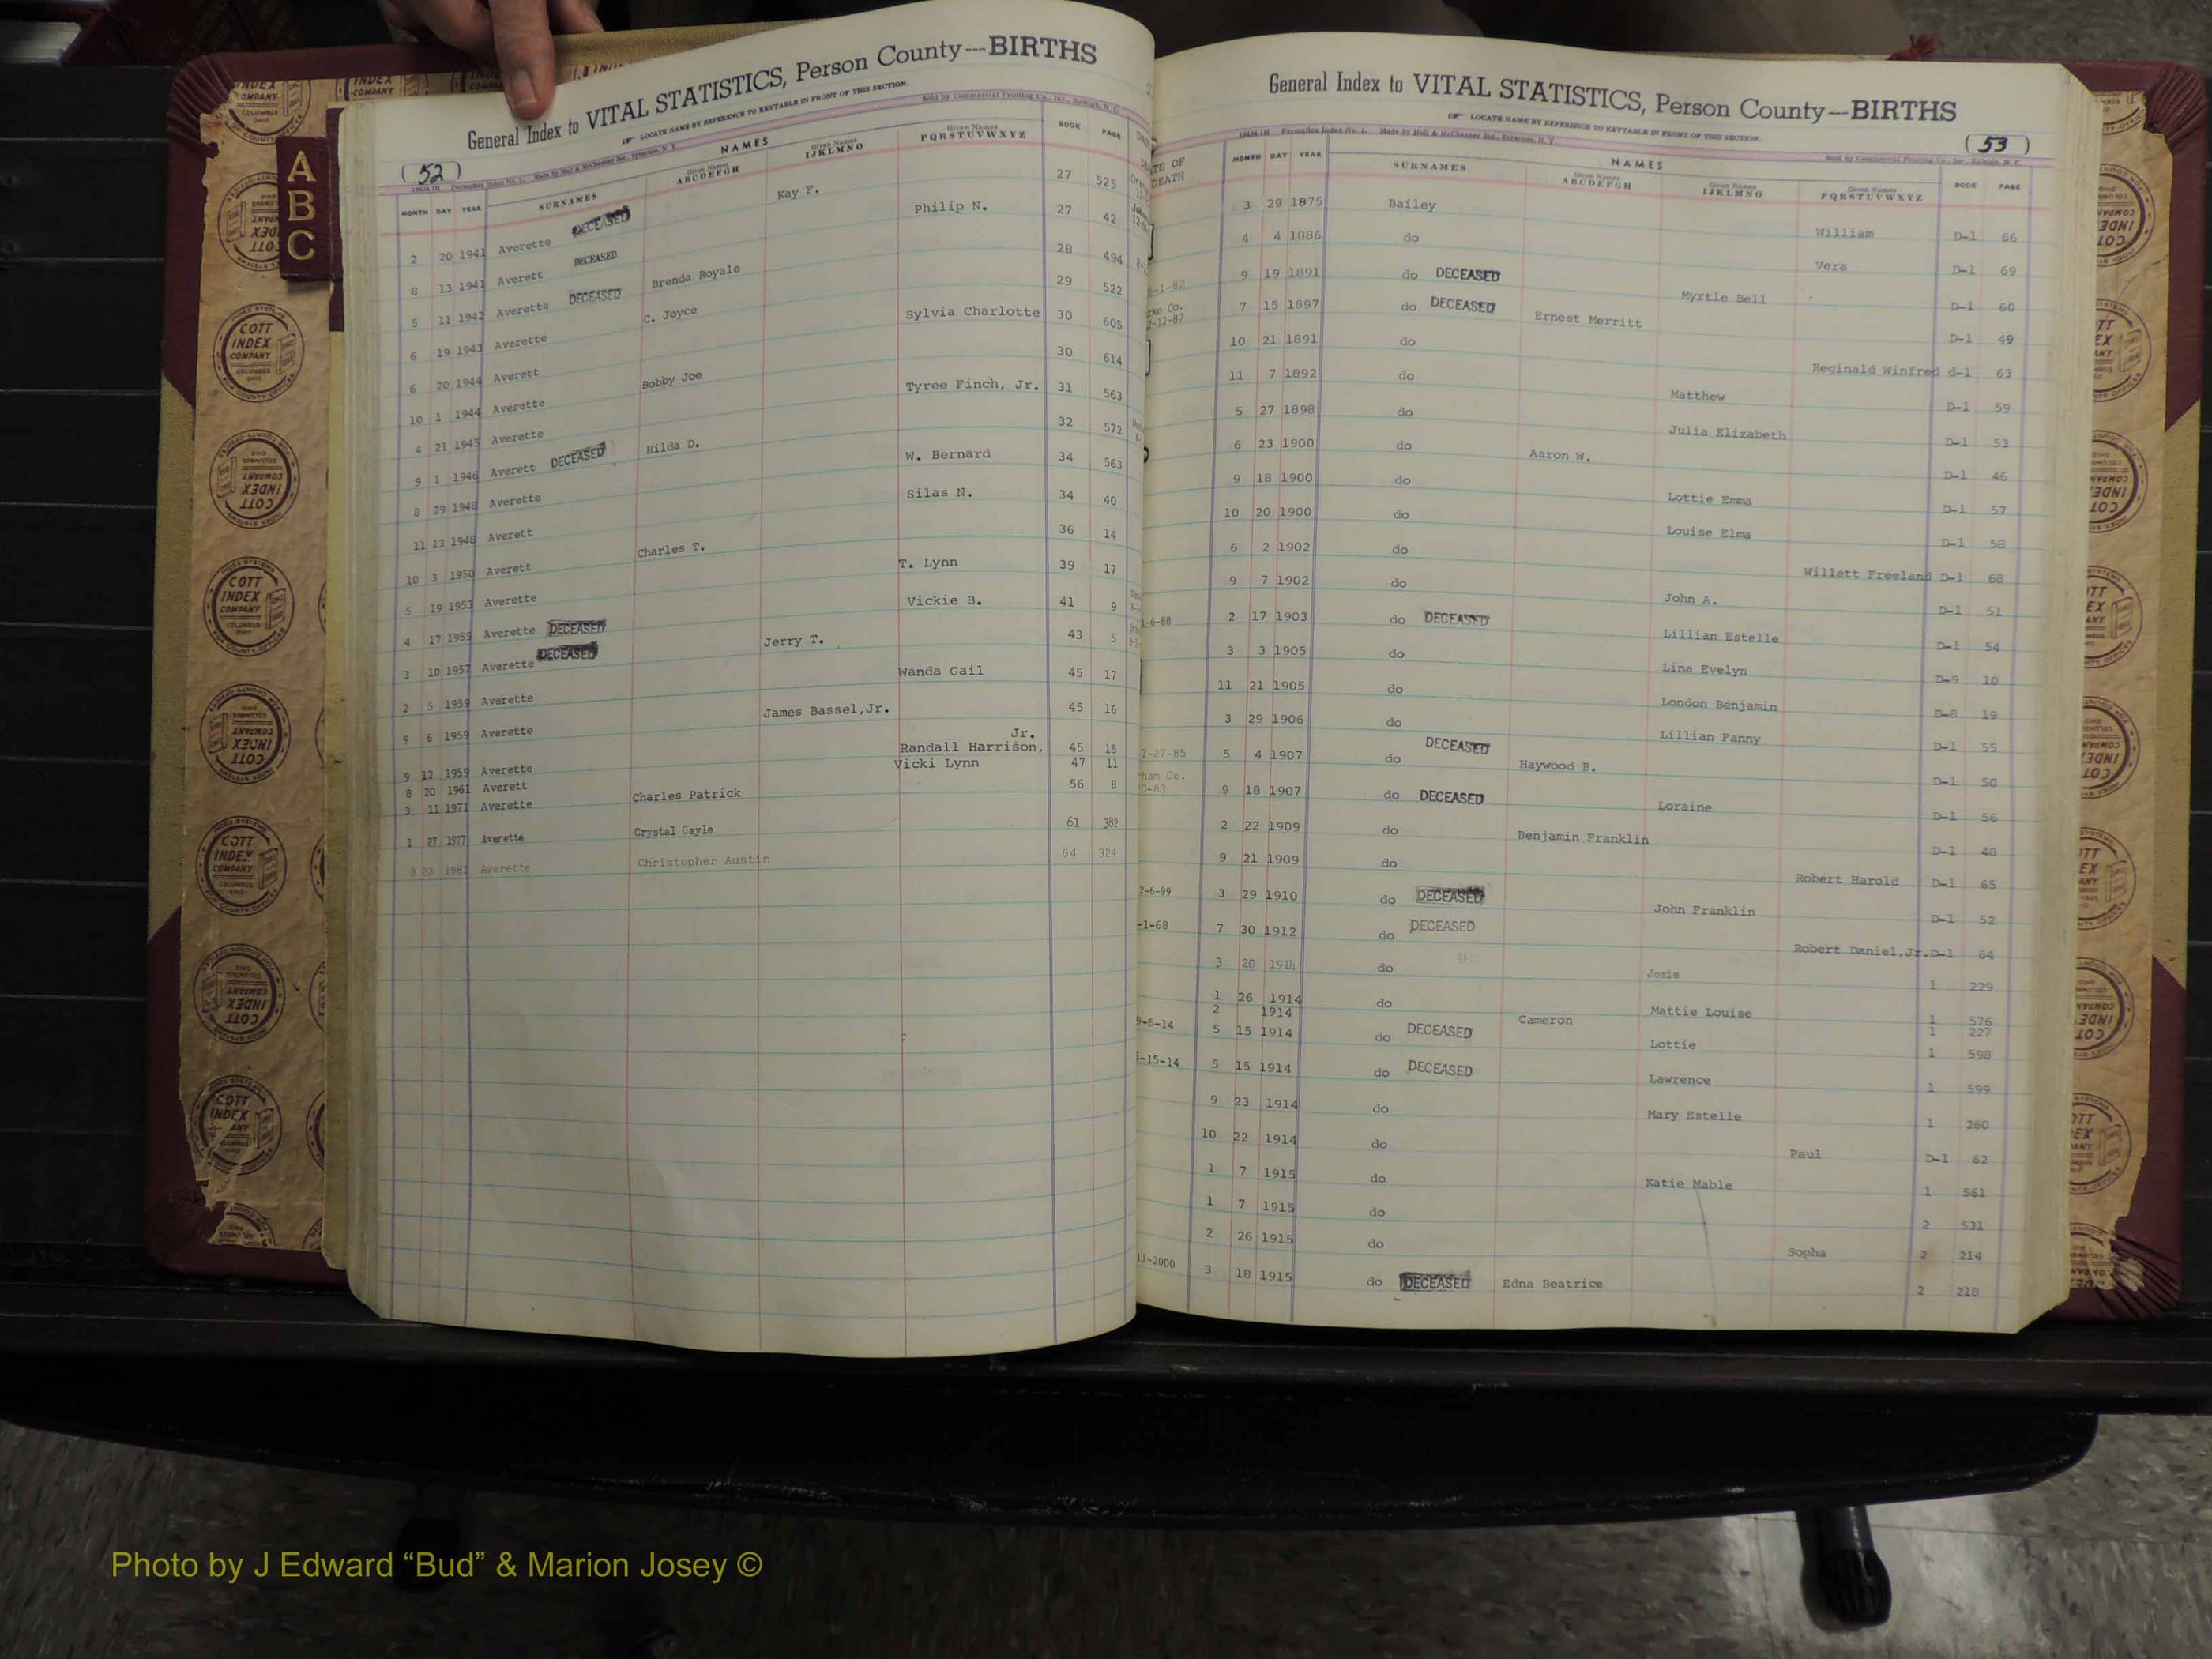 General Index to VITAL STATISTICS, Person County---BIRTHS
LOCATE NAME BY REFERENCE TO KEYTABLE IN FRONT OF THIS SECTION.
Sold by Commercial Printing Co., Inc., Raleigh, N. C.
(52)
MONTH DAY YEAR SURNAMES NAMES Given Names ABCDEFGH Given Names IJKLMNO Given Names PQRSTUVWXYZ BOOK PAGE
2 20 1941 Averette DECEASED Kay F. 27 525
8 13 1941 Averett DECEASED Philip N. 27 42
5 11 1942 Averette DECEASED Brenda Royale 28 494
6 19 1943 Averette C. Joyce 29 522
6 20 1944 Averett Sylvia Charlotte 30 605
10 1 1944 Averette Bobby Joe 30 614
4 21 1945 Averette Tyree Finch, Jr. 31 563
9 1 1946 Averett DECEASED Hilda D. 32 572
8 29 1948 Averette W. Bernard 34 563
11 13 1948 Averett Silas N. 34 40
10 3 1950 Averett Charles T. 36 14
5 19 1953 Averette T. Lynn 39 17
4 17 1955 Averette DECEASED Vickie B. 41 9
3 10 1957 Averette DECEASED Jerry T. 43 5
2 5 1959 Averette Wanda Gail 45 17
9 6 1959 Averette James Bassel,Jr. 45 16
9 12 1959 Averette Randall Harrison, Jr. 45 15
8 20 1961 Averett Vicki Lynn 47 11
3 11 1971 Averette Charles Patrick 56 8
1 27 1977 Averette Crystal Gayle 61 382
23 1981 Averette Christopher Austin 64 324
A
B
C
General Index to VITAL STATISTICS, Person County---BIRTHS
LOCATE NAME BY REFERENCE TO KEYTABLE IN FRONT OF THIS SECTION.
Sold by Commercial Printing Co., Inc., Raleigh, N. C.
(53)
DATE OF DEATH MONTH DAY YEAR SURNAMES NAMES Given Names ABCDEFGH Given Names IJKLMNO Given Names PQRSTUVWXYZ BOOK PAGE
3 29 1875 Bailey William D-1 66
4 4 1886 do Vera D-1 69
9 19 1891 do DECEASED Myrtle Bell D-1 60
7 15 1897 do DECEASED Ernest Merritt D-1 49
10 21 1891 do Reginald Winfred d-1 63
11 7 1892 do Matthew D-1 59
5 27 1898 do Julia Elizabeth D-1 53
6 23 1900 do Aaron W. D-1 46
9 18 1900 do Lottie Emma D-1 57
10 20 1900 do Louise Elma D-1 58
6 2 1902 do Willett Freeland D-1 68
9 7 1902 do John A. D-1 51
-6-88 2 17 1903 do DECEASED Lillian Estelle D-1 54
3 3 1905 do Lina Evelyn D-9 10
11 21 1905 do London Benjamin D-8 19
3 29 1906 do Lillian Fanny D-1 55
1-27-85 5 4 1907 do DECEASED Haywood B. D-1 50
9 18 1907 do DECEASED Loraine D-1 56
2 22 1909 do Benjamin Franklin D-1 48
9 21 1909 do Robert Harold D-1 65
2-6-99 3 29 1910 do DECEASED John Franklin D-1 52
-1-68 7 30 1912 do DECEASED Robert Daniel,Jr. D-1 64
3 20 1914 do Josie 1 229
1 26 1914 do Mattie Louise 1 576
2 1914 Cameron 1 227
9-6-14 5 15 1914 do DECEASED Lottie 1 598
-15-14 5 15 1914 do DECEASED Lawrence 1 599
9 23 1914 do Mary Estelle 1 260
10 22 1914 do Paul D-1 62
1 7 1915 do Katie Mable 1 561
1 7 1915 do 2 531
2 26 1915 do Sopha 2 214
11-2000 3 18 1915 do DECEASED Edna Beatrice 2 218
COTT INDEX COMPANY
Photo by J Edward “Bud” & Marion Josey ©